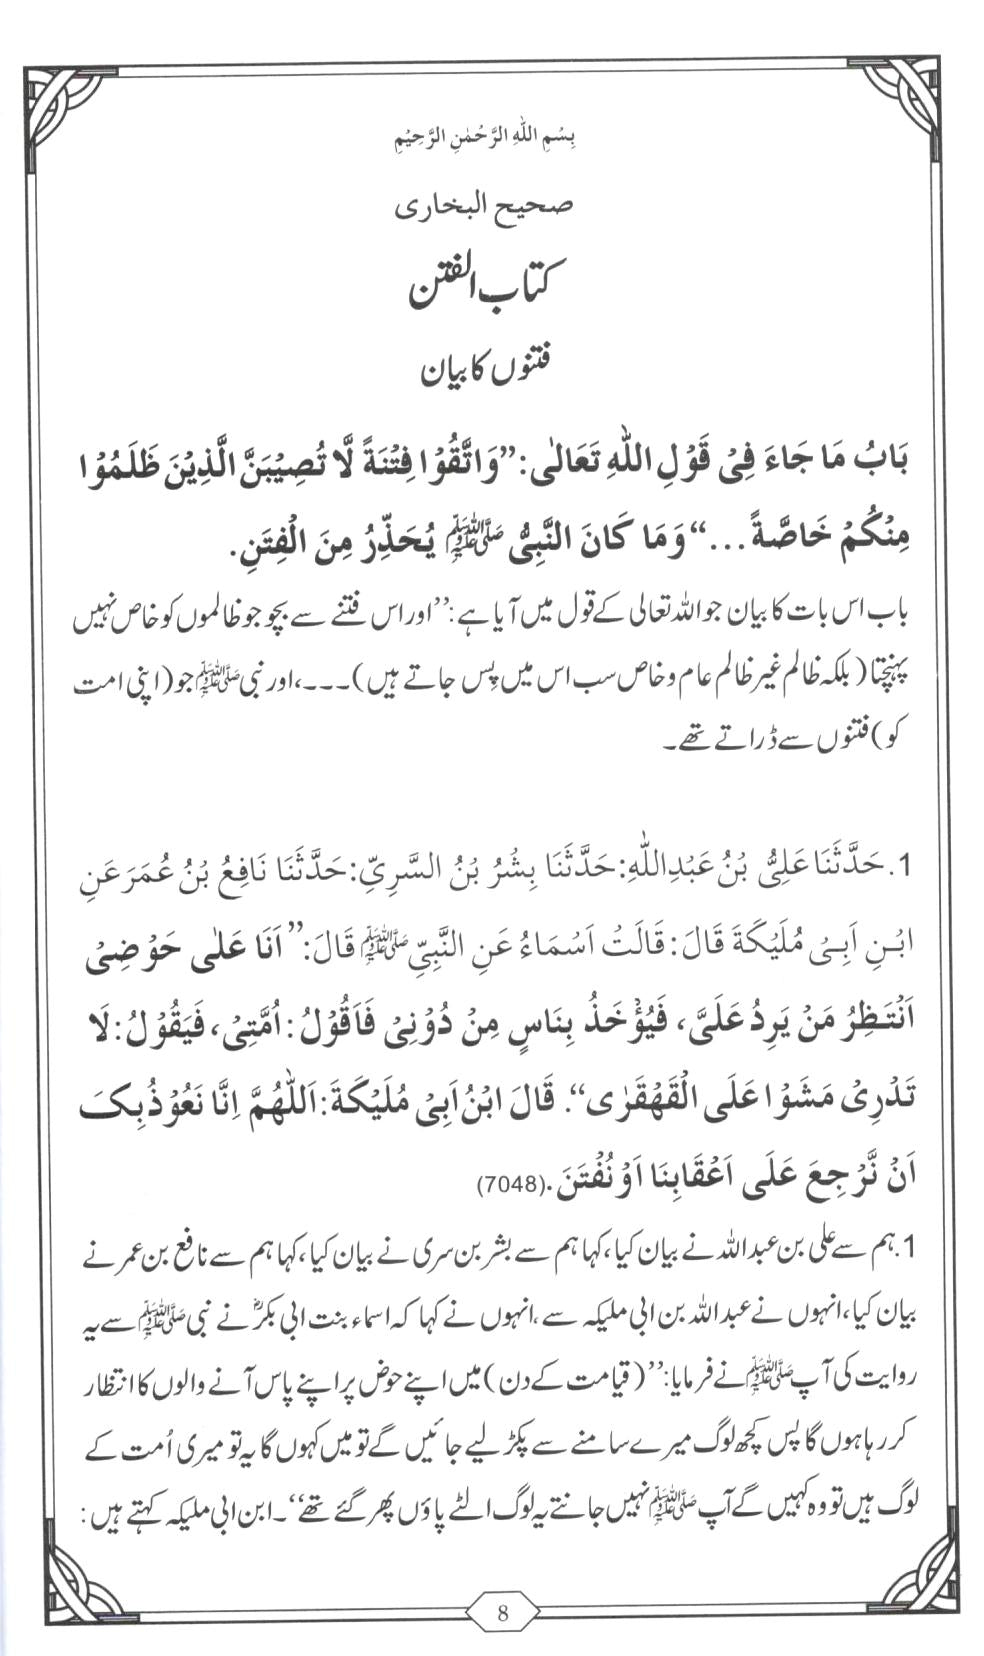 بِسْمِ اللهِ الرَّحْمٰنِ الرَّحِيْمِ
صحیح البخاری
کتاب الفتن
فتنوں کا بیان
بَابُ مَا جَاءَ فِىْ قَوْلِ اللهِ تَعَالٰى:”وَاتَّقُوْا فِتْنَةً لَّا تُصِيْبَنَّ الَّذِيْنَ ظَلَمُوْا
مِنْكُمْ خَاصَّةً...“وَمَا كَانَ النَّبِىُّ ﷺ يُحَذِّرُ مِنَ الْفِتَنِ.
باب اس بات کا بیان جو اللہ تعالی کے قول میں آیا ہے:’’اور اس فتنے سے بچو جو ظالموں کو خاص نہیں
پہنچتا(بلکہ ظالم غیر ظالم عام و خاص سب اس میں پِس جاتے ہیں)۔۔۔،اور نبی ﷺ جو(اپنی امت
کو)فتنوں سے ڈراتے تھے۔
1.حَدَّثَنَا عَلِىُّ بْنُ عَبْدِاللهِ:حَدَّثَنَا بِشْرُ بْنُ السَّرِىِّ:حَدَّثَنَا نَافِعُ بْنُ عُمَرَ عَنِ
ابْنِ اَبِىْ مُلَيْكَةَ قَالَ:قَالَتْ اَسْمَاءُ عَنِ النَّبِىِّ ﷺ قَالَ:”اَنَا عَلٰى حَوْضِىْ
اَنْتَظِرُ مَنْ يَرِدُ عَلَىَّ، فَيُؤْخَذُ بِنَاسٍ مِنْ دُوْنِىْ فَاَقُوْلُ:اُمَّتِىْ، فَيَقُوْلُ:لَا
تَدْرِىْ مَشَوْا عَلَى الْقَهْقَرٰى“. قَالَ ابْنُ اَبِىْ مُلَيْكَةَ:اَللّٰهُمَّ اِنَّا نَعُوْذُ بِكَ
اَنْ نَّرْجِعَ عَلَى اَعْقَابِنَا اَوْ نُفْتَنَ.(7048)
1.ہم سے علی بن عبداللہ نے بیان کیا،کہا ہم سے بشر بن سری نے بیان کیا،کہا ہم سے نافع بن عمر نے
بیان کیا،انہوں نے عبداللہ بن ابی ملیکہ سے،انہوں نے کہا کہ اسماء بنت ابی بکرؓ نے نبی ﷺ سے یہ
روایت کی آپ ﷺ نے فرمایا:’’(قیامت کے دن)میں اپنے حوض پر اپنے پاس آنے والوں کا انتظار
کر رہا ہوں گا پس کچھ لوگ میرے سامنے سے پکڑ لیے جائیں گے تو میں کہوں گا یہ تو میری اُمت کے
لوگ ہیں تو وہ کہیں گے آپ ﷺ نہیں جانتے یہ لوگ الٹے پاؤں پھر گئے تھے‘‘۔ابن ابی ملیکہ کہتے ہیں:
8